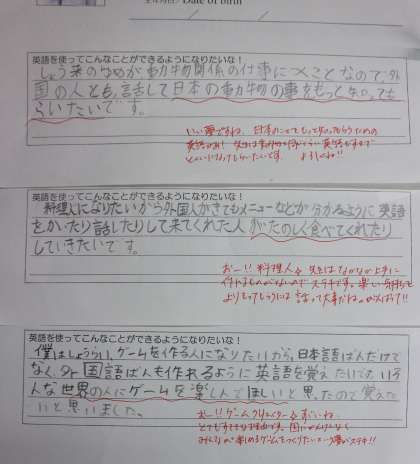 生年月日/Date of birth
英語を使ってこんなことができるようになりたいな!
しょう来のゆめが動物関係の仕事につくことなので、外
国の人とも話して日本の動物の事をもっと知っても
らいたいです。
いい夢ですね。日本のことをもっと知ってもらうための
英語を使ってこんなことができるようになりたいな!
料理人になりたいから外国人がきてもメニューなどが分かるように英語
をかいたり話したりして来てくれた人がたのしく食べてくれたり
していきたいです。
おー!!料理人☆
英語を使ってこんなことができるようになりたいな!
僕はしょうらい、ゲームを作る人になりたいから、日本語ばんだけで
なく、外国語ばんも作れるように英語を覚えたいです。いろ
んな世界の人にゲームを楽しんでほしいと思ったので覚えた
いと思いました。
おー!!ゲームクリエイター☆すごいね。
とてもすてきな夢です。国にかんけいなく
みんなが楽しめるゲームをつくりたいという夢がステキ!!